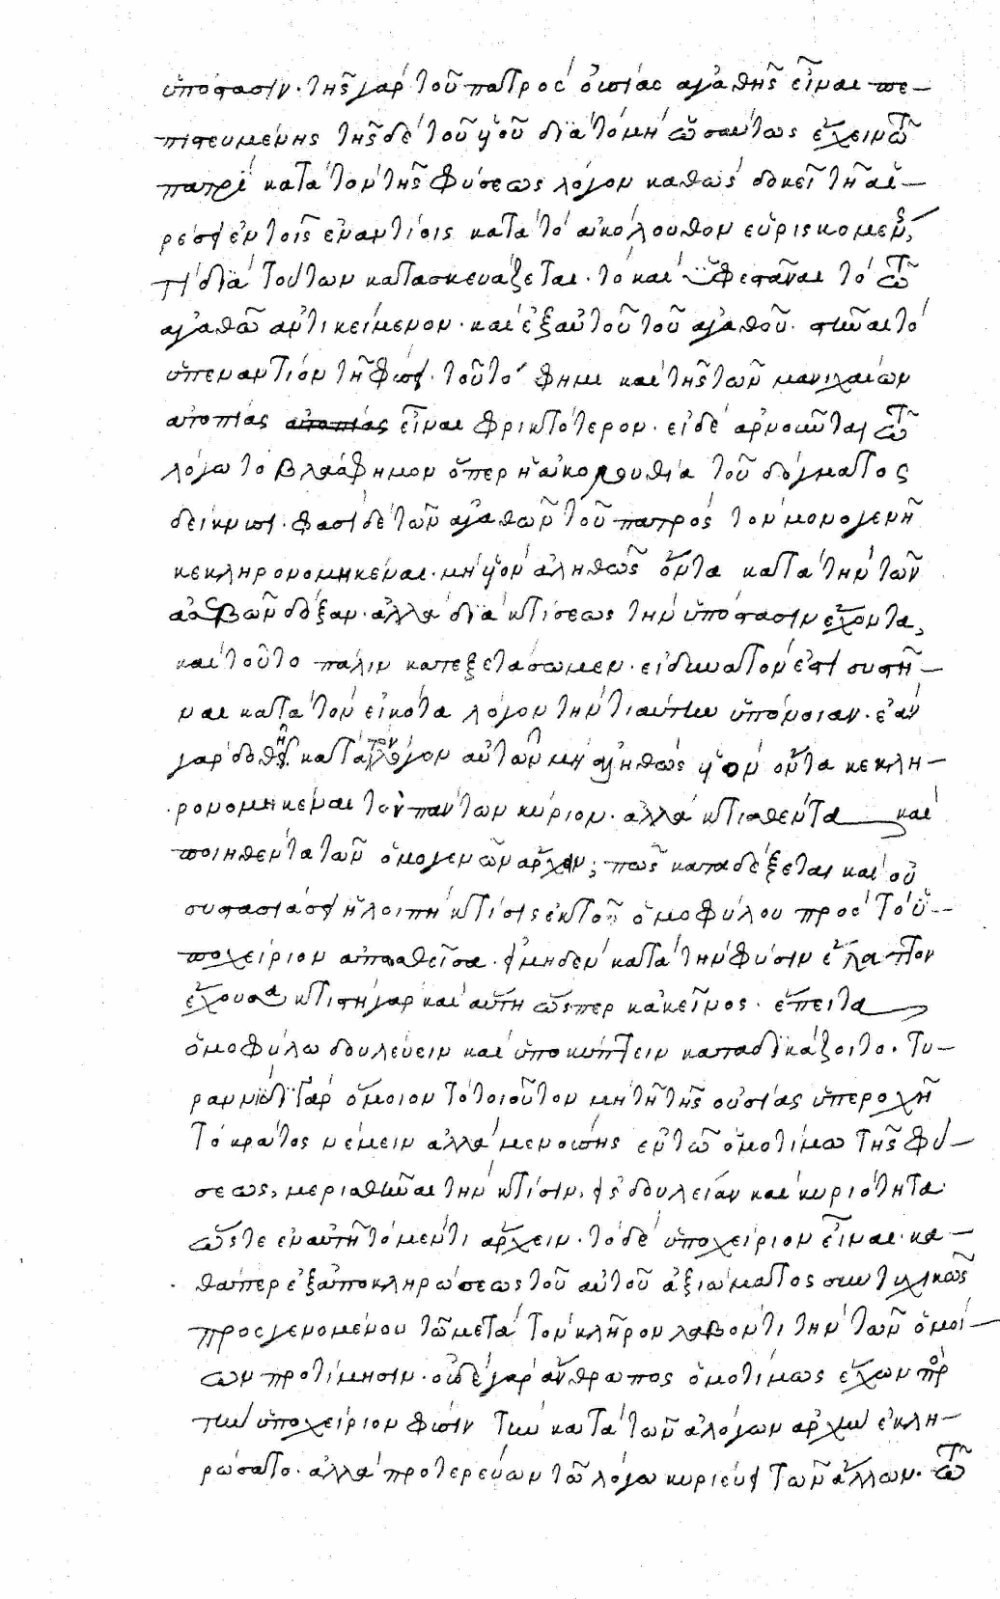 ὑπόστασιν· τῆς γὰρ τοῦ πατρὸς οὐσίας ἀγαθῆς εἶναι πε-
πιστευμένης τῆς δὲ τοῦ υἱοῦ διὰ τὸ μὴ ὡσαύτως ἔχειν τῶ
πατρὶ κατὰ τὸν τῆς φύσεως λόγον καθὼς δοκεῖ τῆ αἱ-
ρέσει ἐν τοῖς ἐναντίοις κατὰ τὸ ἀκόλουθον εὑρισκομένης,
τί διὰ τούτων κατασκευάζεται· τὸ καὶ ὑφεστάναι τὸ τῶ
ἀγαθῶ ἀντικείμενον· καὶ ἐξ αὐτοῦ τοῦ ἀγαθοῦ· στῆναι τὸ
ὑπεναντίον τῆ φύσει· τοῦτό φημι καὶ τῆς τῶν μανιχαίων
ἀτοπίας ἀτοπίας εἶναι φρικτότερον· εἰ δὲ ἀρνοῦνται τῶ
λόγω τὸ βλάσφημον ὅπερ ἡ ἀκολουθία τοῦ δόγματος
δείκνυσι· φασὶ δὲ τῶν ἀγαθῶν τοῦ πατρὸς τὸν μονογενῆ
κεκληρονομηκέναι· μὴ υἱὸν ἀληθῶς ὄντα κατὰ τὴν τῶν
ἀσεβῶν δόξαν· ἀλλὰ διὰ κτίσεως τὴν ὑπόστασιν ἔχοντα,
καὶ τοῦτο πάλιν κατεξετάσωμεν· εἰ δυνατόν ἐστι συστῆ-
ναι κατὰ τὸν εἰκότα λόγον τὴν τιαύτην ὑπόνοιαν· ἐὰν
γὰρ δοθῆ κατὰ τὸν λόγον αὐτῶν μὴ ἀληθῶς υἱὸν ὄντα κεκλη-
ρονομηκέναι τὸν πάντων κύριον· ἀλλὰ κτισθέντα καὶ
ποιηθέντα τῶν ὁμογενῶν ἄρχειν; πῶς καταδέξεται καὶ οὐ
συστασιάσει ἡ λοιπὴ κτίσις ἐκ τοῦ ὁμοφύλου πρὸς τὸ ὑ-
ποχείριον ἀπωσθεῖσα· εἰ μηδὲν κατὰ τὴν φύσιν ἔλαττον
ἔχουσα κτιστὴ γὰρ καὶ αὕτη ὥσπερ κἀκεῖνος· ἔπειτα
ὁμοφύλω δουλεύειν καὶ ὑποκύπτειν καταδικάζοιτο· τυ-
ραννίδι γὰρ ὅμοιον τὸ τοιοῦτον μὴ τῆ τῆς οὐσίας ὑπεροχῆ
τὸ κράτος νέμειν ἀλλὰ μενούσης ἐν τῶ ὁμοτίμω τῆς φύ-
σεως, μερισθῆναι τὴν κτίσιν, εἰς δουλείαν καὶ κυριότητα
ὥστε ἐν αὐτῆ τὸ μέν τι ἄρχειν· τὸ δὲ ὑποχείριον εἶναι· κα-
θάπερ ἐξ ἀποκληρώσεως τοῦ αὐτοῦ ἀξιώματος συντυχικῶς
προσγενομένου τῶ μετὰ τὸν κλῆρον λαβόντι τὴν τῶν ὁμοί-
ων προτίμησιν· οὐδὲ γὰρ ἄνθρωπος ὁμοτίμως ἔχων πρὸς
τὴν ὑποχείριον φύσιν τὴν κατὰ τῶν ἀλόγων ἀρχὴν ἐκλη-
ρώσατο· ἀλλὰ προτερεύων τῶ λόγω κυριεύει τῶν ἄλλων· τῶ